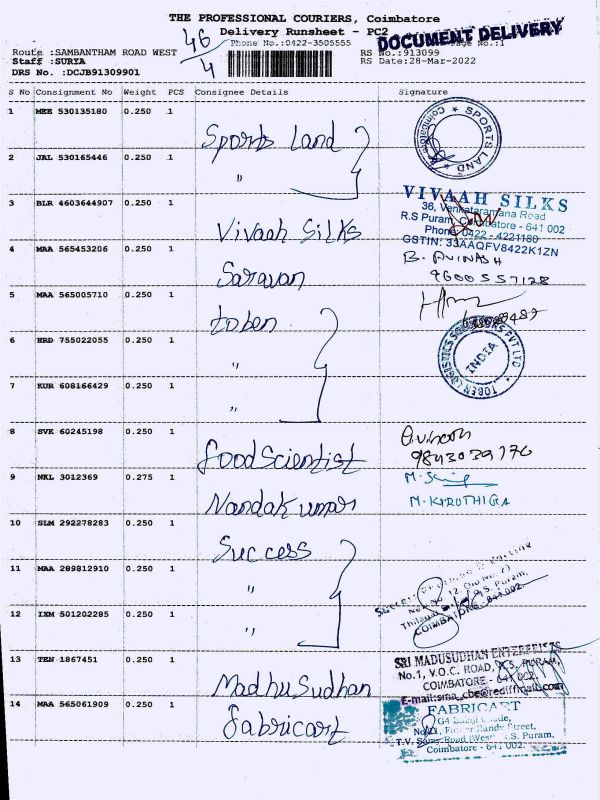 THE PROFESSIONAL COURIERS, Coimbatore
Delivery Runsheet - PC2
46/4
Phone No.:0422-3505555
DOCUMENT DELIVERY
Page No.:1
Route :SAMBANTHAM ROAD WEST
RS No.:913099
Staff :SURYA
RS Date:28-Mar-2022
DRS No. :DCJB91309901
S No Consignment No Weight PCS Consignee Details Signature
1 MEE 530135180 0.250 1 Sports Land
SPORTS LAND
2 JAL 530165446 0.250 1 "
3 BLR 4603644907 0.250 1 Vivaah Silks
VIVAAH SILKS
36, Venkataramana Road
R.S Puram, Coimbatore - 641 002
Phone 0422 - 4221180
GSTIN: 33AAQFV8422K1ZN
4 MAA 565453206 0.250 1 Saravan
B. AVINASH
9600557128
5 MAA 565005710 0.250 1 toben
6 HRD 755022055 0.250 1 "
TOBEN LOGISTICS PVT LTD
INDIA
7 KUR 608166429 0.250 1 "
8 SVK 60245198 0.250 1 foodScientist
9843039176
9 NKL 3012369 0.275 1 Nandakumar
M. KIRUTHIGA
10 SLM 292278283 0.250 1 Success
11 MAA 289812910 0.250 1 "
12 IXM 501202285 0.250 1 "
COIMBATORE - 641 002.
13 TEN 1867451 0.250 1 Madhu Sudhan
SRI MADUSUDHAN ENTERPRISES
No.1, V.O.C. ROAD, R.S. PURAM,
COIMBATORE - 641 002.
14 MAA 565061909 0.250 1 fabricart
FABRICART
Coimbatore - 641 002.